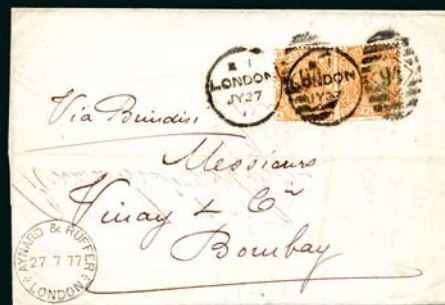 LONDON
JY 27
77
LONDON
JY 27
Via Brindisi
Messieurs
Vinay & Cie
Bombay
AYNARD & RUFFER
27 7 77
LONDON